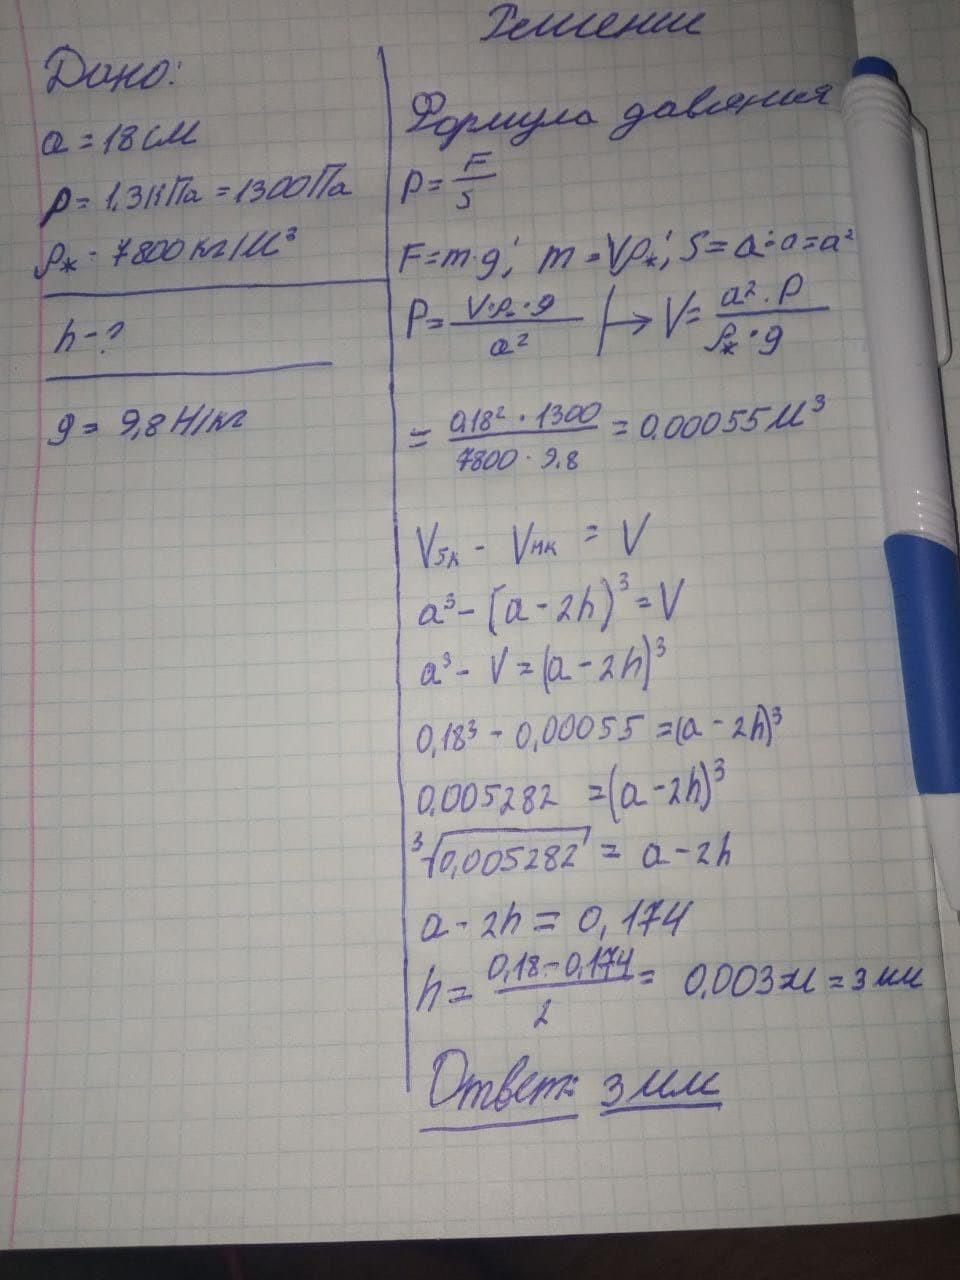 Решение
Дано:
a = 18 см
p = 1,3 кПа = 1300 Па
ρж - 7800 кг/м³
h - ?
g = 9,8 Н/кг
Формула давления
p = F/S
F = m·g; m = Vρж; S = a·a = a²
P = V·ρ·g / a² |→ V = a²·P / ρж·g
= 0,18²·1300 / 7800·9,8 = 0,00055 м³
Vбк - Vмк = V
a³ - (a - 2h)³ = V
a³ - V = (a - 2h)³
0,18³ - 0,00055 = (a - 2h)³
0,005282 = (a - 2h)³
³√0,005282 = a - 2h
a - 2h = 0,174
h = 0,18 - 0,174 / 2 = 0,003 м = 3 мм
Ответ: 3 мм